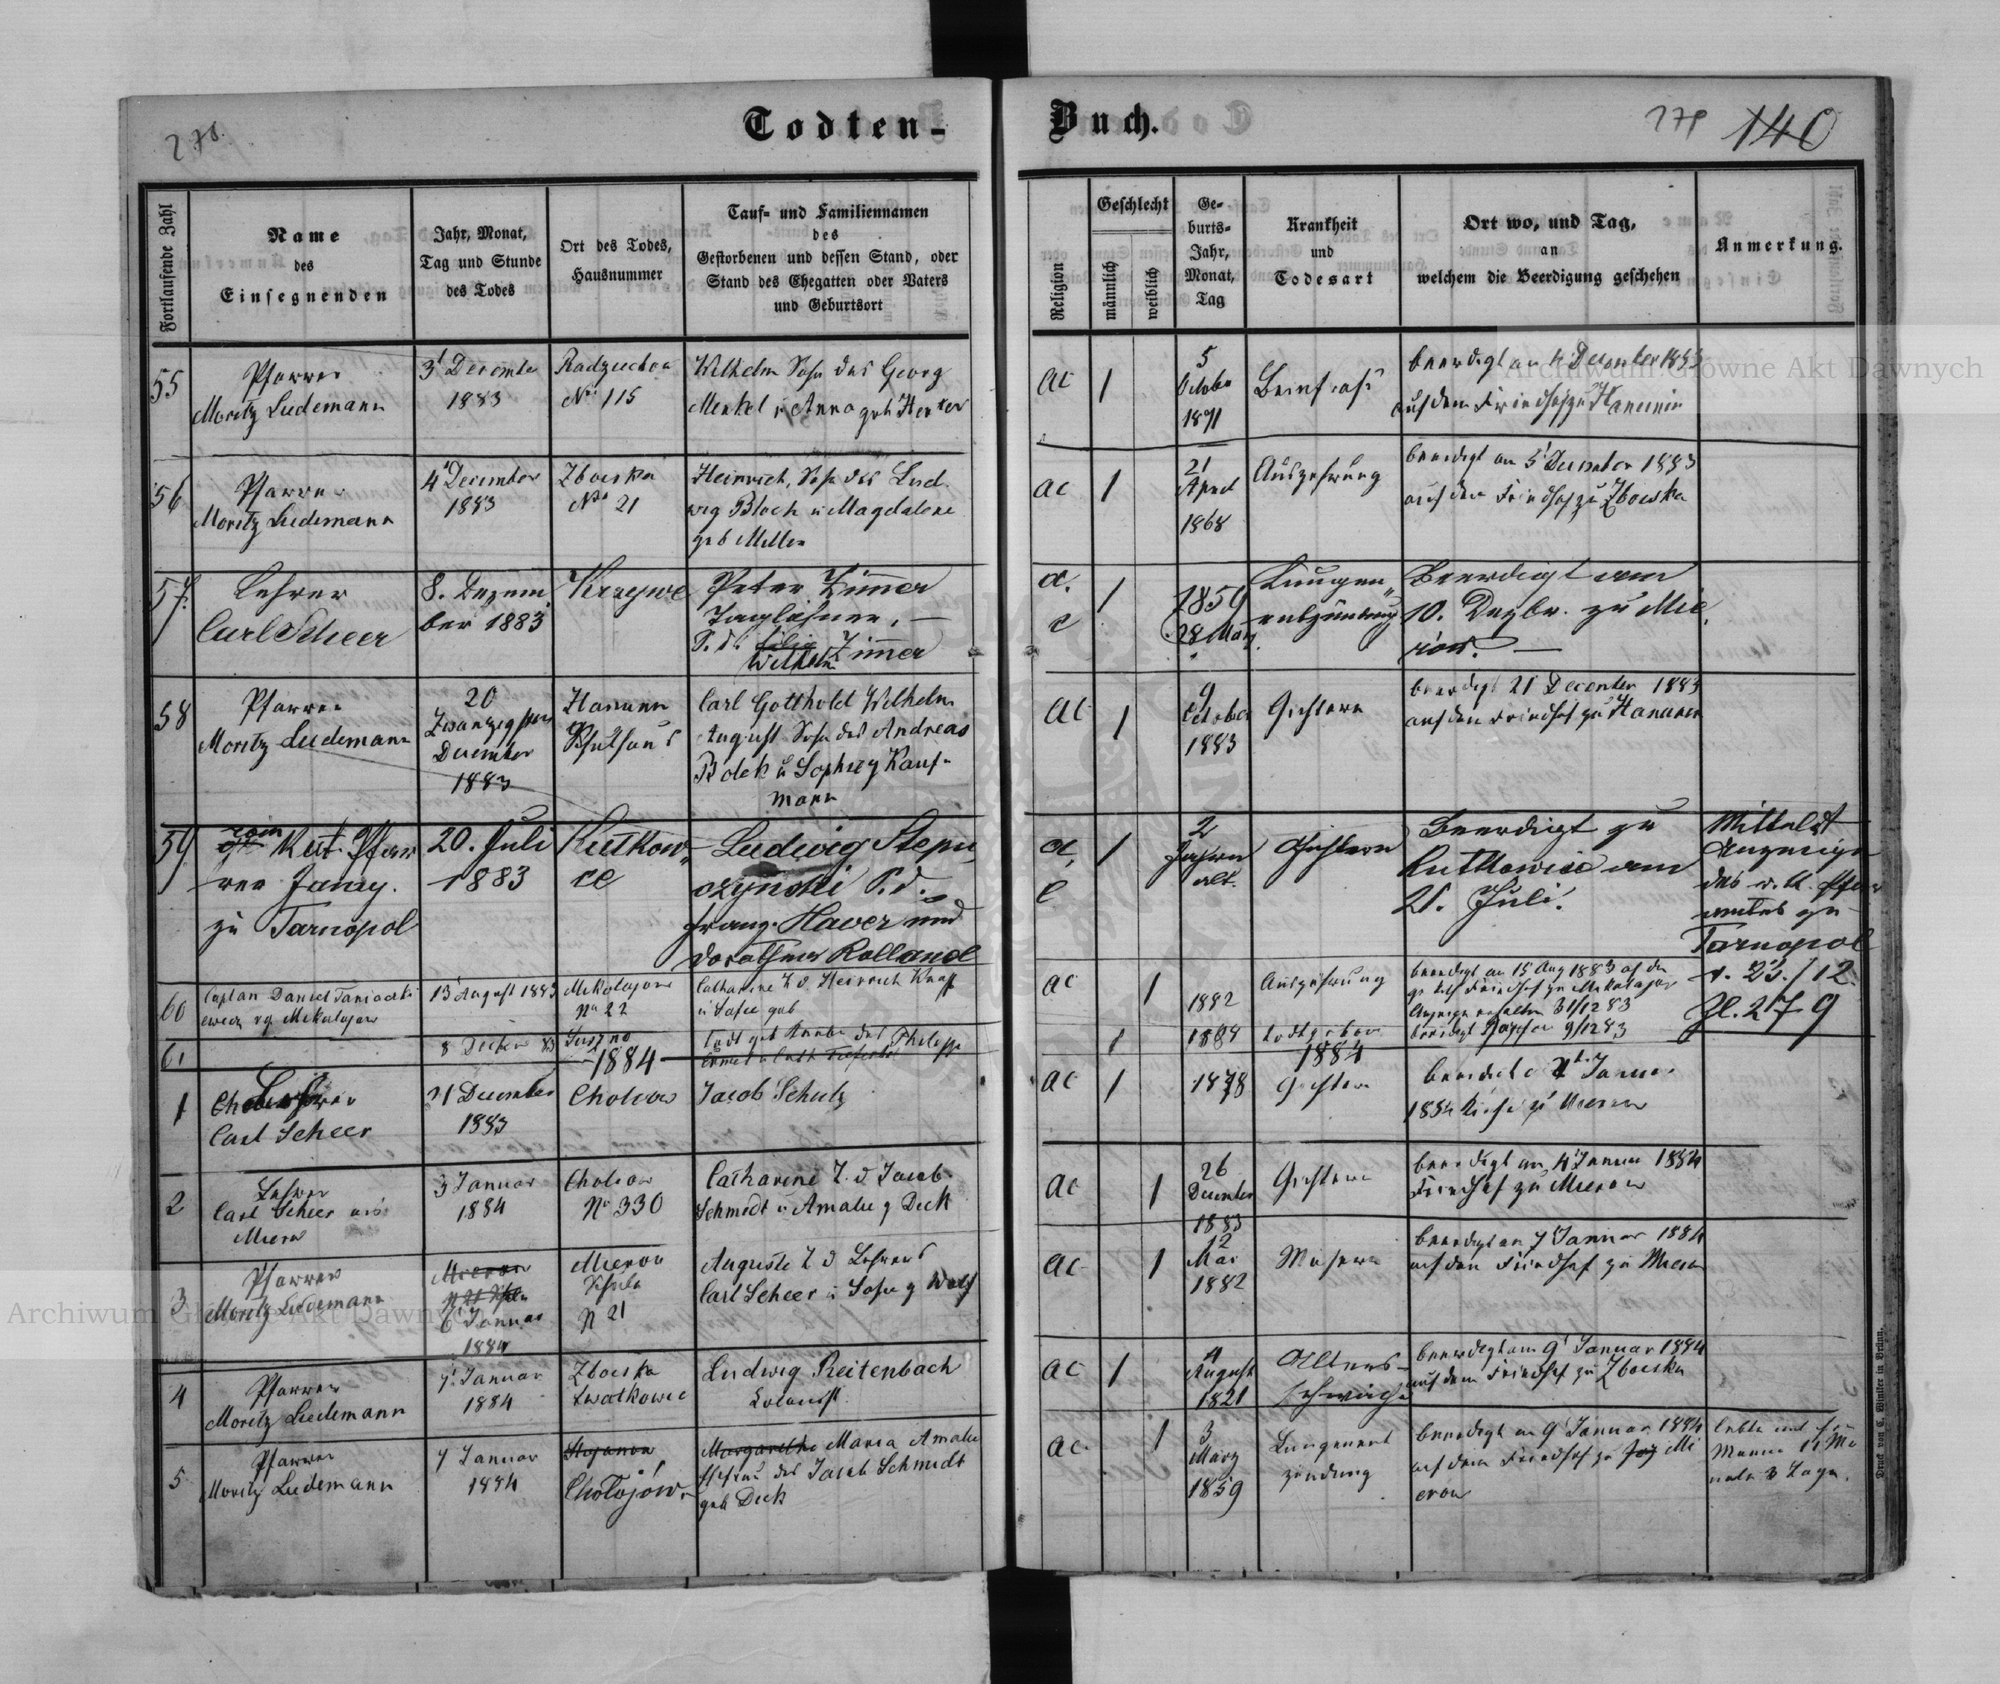 278.
Todten-
Buch.
279
140
Fortlaufende Zahl
Name
des
Einsegnenden
Jahr, Monat,
Tag und Stunde
des Todes
Ort des Todes,
Hausnummer
Tauf- und Familiennamen
des
Gestorbenen und dessen Stand, oder
Stand des Ehegatten oder Vaters
und Geburtsort
Religion
Geschlecht
männlich
weiblich
Ge-
burts-
Jahr,
Monat,
Tag
Krankheit
und
Todesart
Ort wo, und Tag,
an
welchem die Beerdigung geschehen
Anmerkung.
55
Pfarrer
Moritz Ludemann
3t December
1883
Radziechow
No 115
Wilhelm Sohn des Georg
Merkel u Anna geb Herter
ac
1
5
October
1871
beerdigt am 4 December 1883
auf dem Friedhof zu Hanunin
56
Pfarrer
Moritz Ludemann
4t December
1883
Zboiska
No 21
Heinrich, Sohn des Lud
wig Bloch u Magdalene
geb Miller
ac
1
21
April
1868
Auszehrung
beerdigt am 5t December 1883
auf dem Friedhof zu Zboiska
57.
Lehrer
Carl Scheer
8. Dezem
ber 1883
Krzywe
Peter Zimmer
Taglöhner, —
S. d.
Wilhelm Zimmer
a.
c
1
1859
28 März
Lungen„
entzündung
Beerdigt am
10. Dezbr. zu Mie,
rów. —
58
Pfarrer
Moritz Ludemann
20
Zwanzigsten
December
1883
Hanunin
Schulhaus
Carl Gotthold Wilhelm
August Sohn des Andreas
Bolek u Sophie g Kauf-
mann
ac
1
9
October
1883
Gichtern
beerdigt 21t December 1883
auf dem Friedhof zu Hanunin
59
röm
Kat. Pfar
rer
zu Tarnopol
20. Juli
1883
Kutkow„
ce
Ludwig Stepu,
czyński S. d.
Franz Xaver und
Dorothea Rolland
a,
c
1
2
Jahre
alt.
Gichtern
Beerdigt zu
Kutkowice am
21. Juli.
Mittelst
Anzeige
des r. k. Pfarr
amtes zu
Tarnopol
v. 23./12.
Zl. 279
60
Caplan Daniel
13 August 1883
Mikolajow
No 22
Catharine T d. Heinrich
u Sofie geb
ac
1
1882
Auszehrung
beerdigt am 15 Aug 1883 auf dem
Friedhof zu Mikolajow
Anzeige erhalten 31/12 83
61
8 December 83
Suszno
Todt geb Knabe des Philipp
1
beerdigt 9/12 83
1884
1884
1
Lehrer
Carl Scheer
31 December
1883
Cholojow
Jacob Schulz
ac
1
1878
Gichtern
beerdigt d 2t Januar
1884
2
Lehrer
Carl Scheer aus
Mierow
3 Januar
1884
Cholojow
No 330
Catharine T. d Jacob
Schmidt u Amalie g Deck
ac
1
26
December
1883
Gichtern
beerdigt am 4t Januar 1884
Friedhof zu Mierow
3
Pfarrer
Moritz Ludemann
Mierow
6 Januar
1884
Mierow
Schule
N 21
Auguste T d Lehrers
Carl Scheer u Sofie g Wolf
ac
1
12
Mai
1882
Masern
beerdigt am 7 Januar 1884
auf dem Friedhof zu Mierow
4
Pfarrer
Moritz Ludemann
7t Januar
1884
Zboiska
Ludwig Reitenbach
Colonist.
ac
1
4
August
1821
Alters-
schwäche
beerdigt am 9t Januar 1884
auf dem Friedhof zu Zboiska
5
Pfarrer
Moritz Ludemann
7 Januar
1884
Stojanow,
Cholojów.
Margarethe Maria Amalie
Ehefrau des Jacob Schmidt
geb Deck
ac
1
3
März
1859
Lungenent
zündung
beerdigt am 9t Januar 1884
auf dem Friedhof zu Mi
erow
lebte mit
Manne 11 Mo
nate 3 Tage.
Druck von C. Winiker in Brünn.
Archiwum Główne Akt Dawnych
Archiwum Główne Akt Dawnych